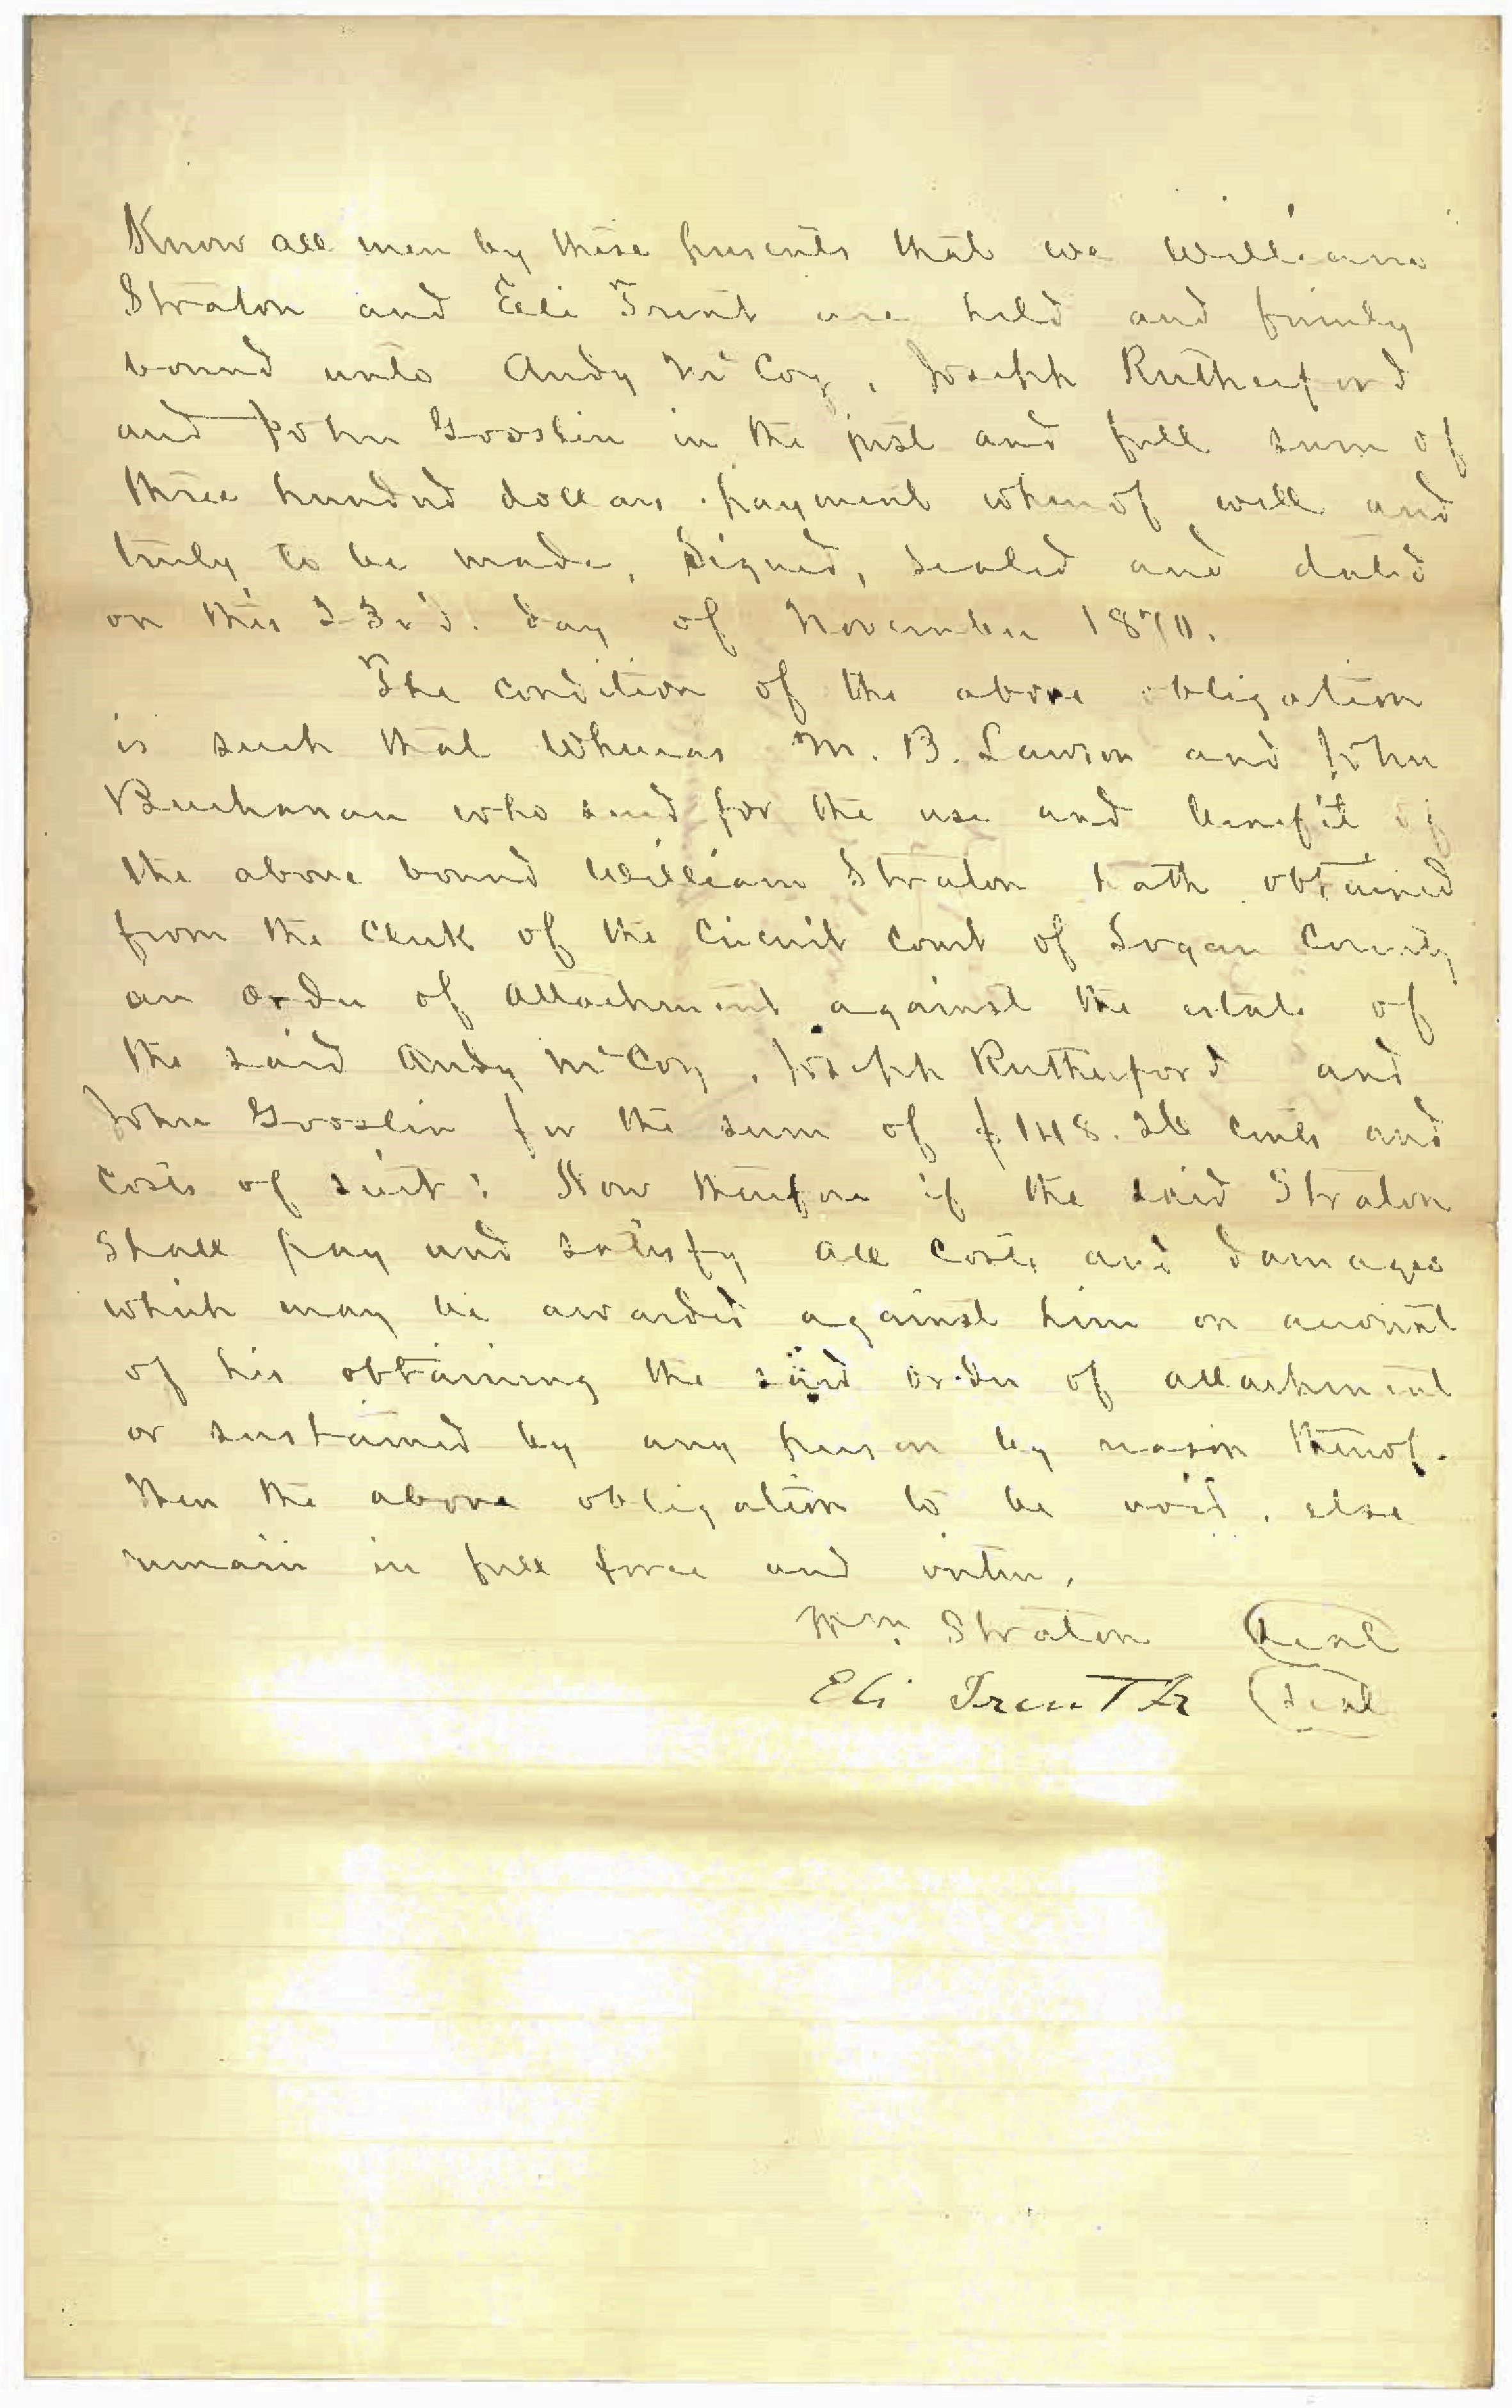 Know all men by these presents that we William
Straton and Eli Trent are held and firmly
bound unto Andy McCoy, Joseph Rutherford
and John Gooslin in the just and full sum of
three hundred dollars. payment whereof well and
truly to be made, Signed, sealed and dated
on this 23rd. day of November 1870.
The condition of the above obligation
is such that Whereas M. B. Lawson and John
Buchanan who sued for the use and benefit of
the above bound William Straton hath obtained
from the Clerk of the Circuit Court of Logan County
an order of attachment against the estate of
the said Andy McCoy, Joseph Rutherford and
John Gooslin for the sum of $148.26 cents and
costs of suit: Now therefore if the said Straton
shall pay and satisfy all costs and damages
which may be awarded against him on account
of his obtaining the said order of attachment
or sustained by any person by reason thereof.
then the above obligation to be void, else
remain in full force and virtue.
Wm. Straton Seal
Eli Trent Sr Seal